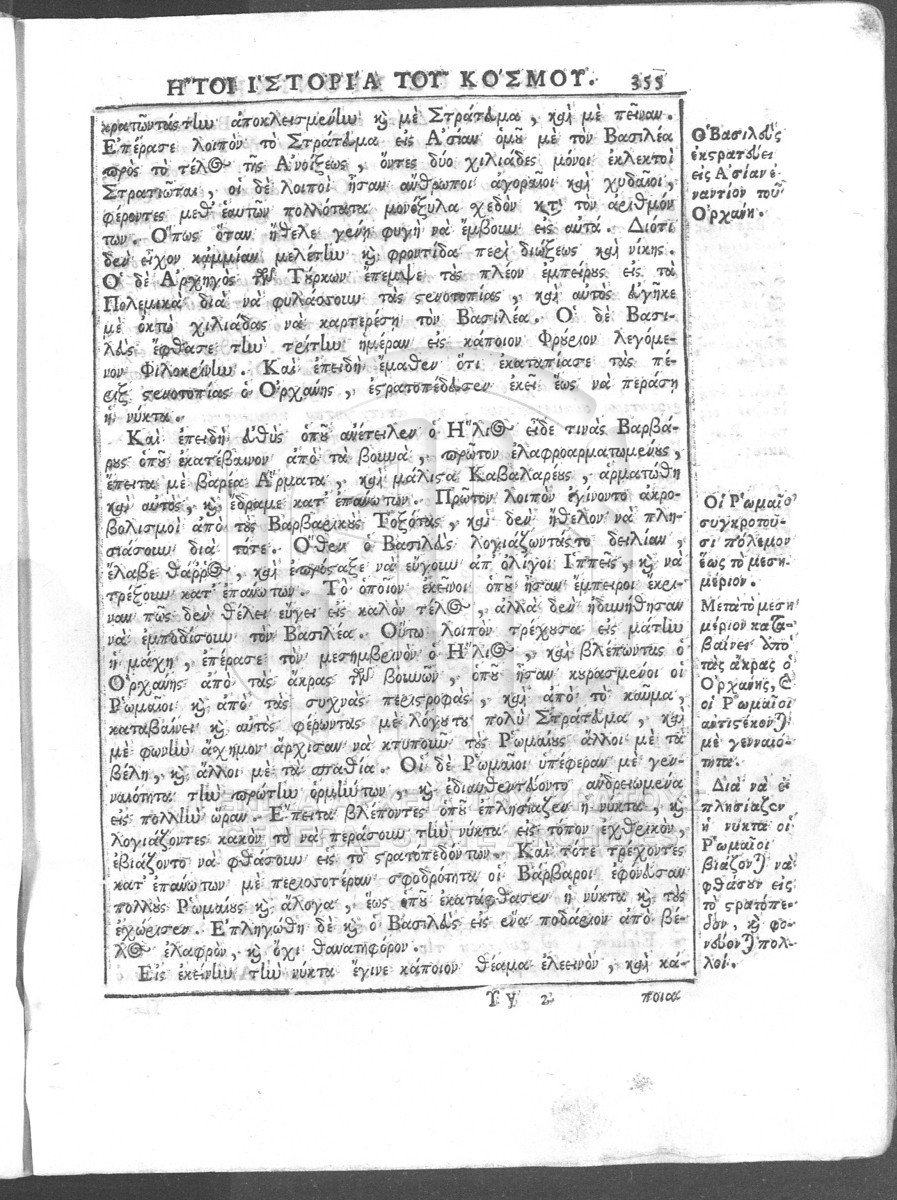 ΗΤΟΙ ΙΣΤΟΡΙΑ ΤΟΥ ΚΟΣΜΟΥ. 355
κρατῶντάς τὴν ἀποκλεισμένην καὶ μὲ Στράτευμα, καὶ μὲ πεῖναν.
Ἐπέρασε λοιπὸν τὸ Στράτευμα εἰς Ἀσίαν ὁμοῦ μὲ τὸν Βασιλέα
πρὸς τὸ τέλος τῆς Ἀνοίξεως, ὄντες δύο χιλιάδες μόνοι ἐκλεκτοὶ
Στρατιῶται, οἱ δὲ λοιποὶ ἦσαν ἄνθρωποι ἀγοραῖοι καὶ χυδαῖοι,
φέροντες μεθ' ἑαυτῶν πολλότατα μονόξυλα σχεδὸν κατὰ τὸν ἀριθμόν
των. Ὅπως ὅταν ἤθελε γένῃ φυγὴ νὰ ἔμβουν εἰς αὐτά. Διότι
δὲν εἶχον κάμμίαν μελέτην καὶ φροντίδα περὶ διώξεως καὶ νίκης.
Ὁ δὲ Ἀρχηγὸς τῶν Τούρκων ἔπεμψε τοὺς πλέον ἐμπείρους εἰς τὰ
Πολεμικὰ διὰ νὰ φυλάσσουν τὰς στενοτοπίας, καὶ αὐτὸς εὐγῆκε
μὲ ὀκτὼ χιλιάδας νὰ καρτερέσῃ τὸν Βασιλέα. Ὁ δὲ Βασι-
λεὺς ἔφθασε τὴν τρίτην ἡμέραν εἰς κάποιον Φρούριον λεγόμε-
νον Φιλοκρίνην. Καὶ ἐπειδὴ ἔμαθεν ὅτι ἐκαταπίασε τὰς πέ-
ριξ στενοτοπίας ὁ Ὀρχάνης, ἐστρατοπέδευσεν ἐκεῖ ἕως νὰ περάσῃ
ἡ νύκτα.
Καὶ ἐπειδὴ εὐθὺς ὁποῦ ἀνέτειλεν ὁ Ἥλιος εἶδε τινὰς Βαρβά-
ρους ὁποῦ ἐκατέβαινον ἀπὸ τὰ βουνὰ, πρῶτον ἐλαφροαρματωμένους,
ἔπειτα μὲ βαρέα Ἄρματα, καὶ μάλιστα Καβαλαρέους, ἁρματώθη
καὶ αὐτὸς, καὶ ἔδραμε κατ' ἐπάνωτων. Πρῶτον λοιπὸν ἐγίνοντο ἀκρο-
βολισμοὶ ἀπὸ τοὺς Βαρβαρικοὺς Τοξότας, καὶ δὲν ἤθελον νὰ πλη-
σιάσουν διὰ τότε. Ὅθεν ὁ Βασιλεὺς λογιάζωντάς το δειλίαν,
ἔλαβε θάρρος, καὶ ἐπρόσταξε νὰ εὔγουν ἀπ' ὀλίγοι Ἱππεῖς, καὶ νὰ
τρέξουν κατ' ἐπάνωτων. Τὸ ὁποῖον ἐκεῖνοι ὁποῦ ἦσαν ἔμπειροι ἔκρι-
ναν πῶς δὲν θέλει εὔγει εἰς καλὸν τέλος, ἀλλὰ δὲν ἠδυνήθησαν
νὰ ἐμποδίσουν τὸν Βασιλέα. Οὕτω λοιπὸν τρέχουσα εἰς μάτην
ἡ μάχη, ἐπέρασε τὸν μεσημβρινὸν ὁ Ἥλιος, καὶ βλέπωντας ὁ
Ὀρχάνης ἀπὸ τὰς ἄκρας τῶν βουνῶν, ὁποῦ ἦσαν κυρασμένοι οἱ
Ῥωμαῖοι καὶ ἀπὸ τὰς συχνὰς περιστροφὰς, καὶ ἀπὸ τὸ καῦμα,
καταβαίνει καὶ αὐτὸς φέρωντας μὲ λόγουτου πολὺ Στράτευμα, καὶ
μὲ φωνὴν ἄσχημον ἄρχισαν νὰ κτυποῦν τοὺς Ῥωμαίους ἄλλοι μὲ τὰ
βέλη, καὶ ἄλλοι μὲ τὰ σπαθία. Οἱ δὲ Ῥωμαῖοι ὑπέφεραν μὲ γεν-
ναιότητα τὴν πρώτην ὁρμήντων, καὶ ἐδιαυθεντεύοντο ἀνδρειωμένα
εἰς πολλὴν ὥραν. Ἔπειτα βλέποντες ὁποῦ ἐπλησίαζεν ἡ νύκτα, καὶ
λογιάζοντες κακὸν τὸ νὰ περάσουν τὴν νύκτα εἰς τόπον ἐχθρικὸν,
ἐβιάζοντο νὰ φθάσουν εἰς τὸ στρατοπεδόντων. Καὶ τότε τρέχοντες
κατ' ἐπάνωτων μὲ περισσοτέραν σφοδρότητα οἱ Βάρβαροι ἐφόνευσαν
πολλοὺς Ῥωμαίους καὶ ἄλογα, ἕως ὁποῦ ἐκατάφθασεν ἡ νύκτα καὶ τοὺς
ἐχώρισεν. Ἐπληγώθη δὲ καὶ ὁ Βασιλεὺς εἰς ἕνα ποδάριον ἀπὸ βέ-
λος ἐλαφρὸν, καὶ ὄχι θανατηφόρον.
Εἰς ἐκείνην τὴν νύκτα ἔγινε κάποιον θέαμα ἐλεεινὸν, καὶ κά-
Υ y 2 ποια
Ὁ Βασιλεὺς
ἐκστρατεύει
εἰς Ἀσίαν ἐ-
ναντίον τοῦ
Ὀρχάνη.
Οἱ Ῥωμαῖοι
συγκροτοῦ-
σι πόλεμον
ἕως τὸ μεση-
μέριον.
Μετὰ τὸ μεση-
μέριον κατα-
βαίνει ἀπὸ
τὰς ἄκρας ὁ
Ὀρχάνης, καὶ
οἱ Ῥωμαῖοι
ἀντιστέκονται
μὲ γενναιό-
τητα.
Διὰ νὰ ἐ-
πλησίαζεν
ἡ νύκτα οἱ
Ῥωμαῖοι
βιάζονται νὰ
φθάσουν εἰς
τὸ στρατόπε-
δον, καὶ φο-
νεύονται πολ-
λοί.